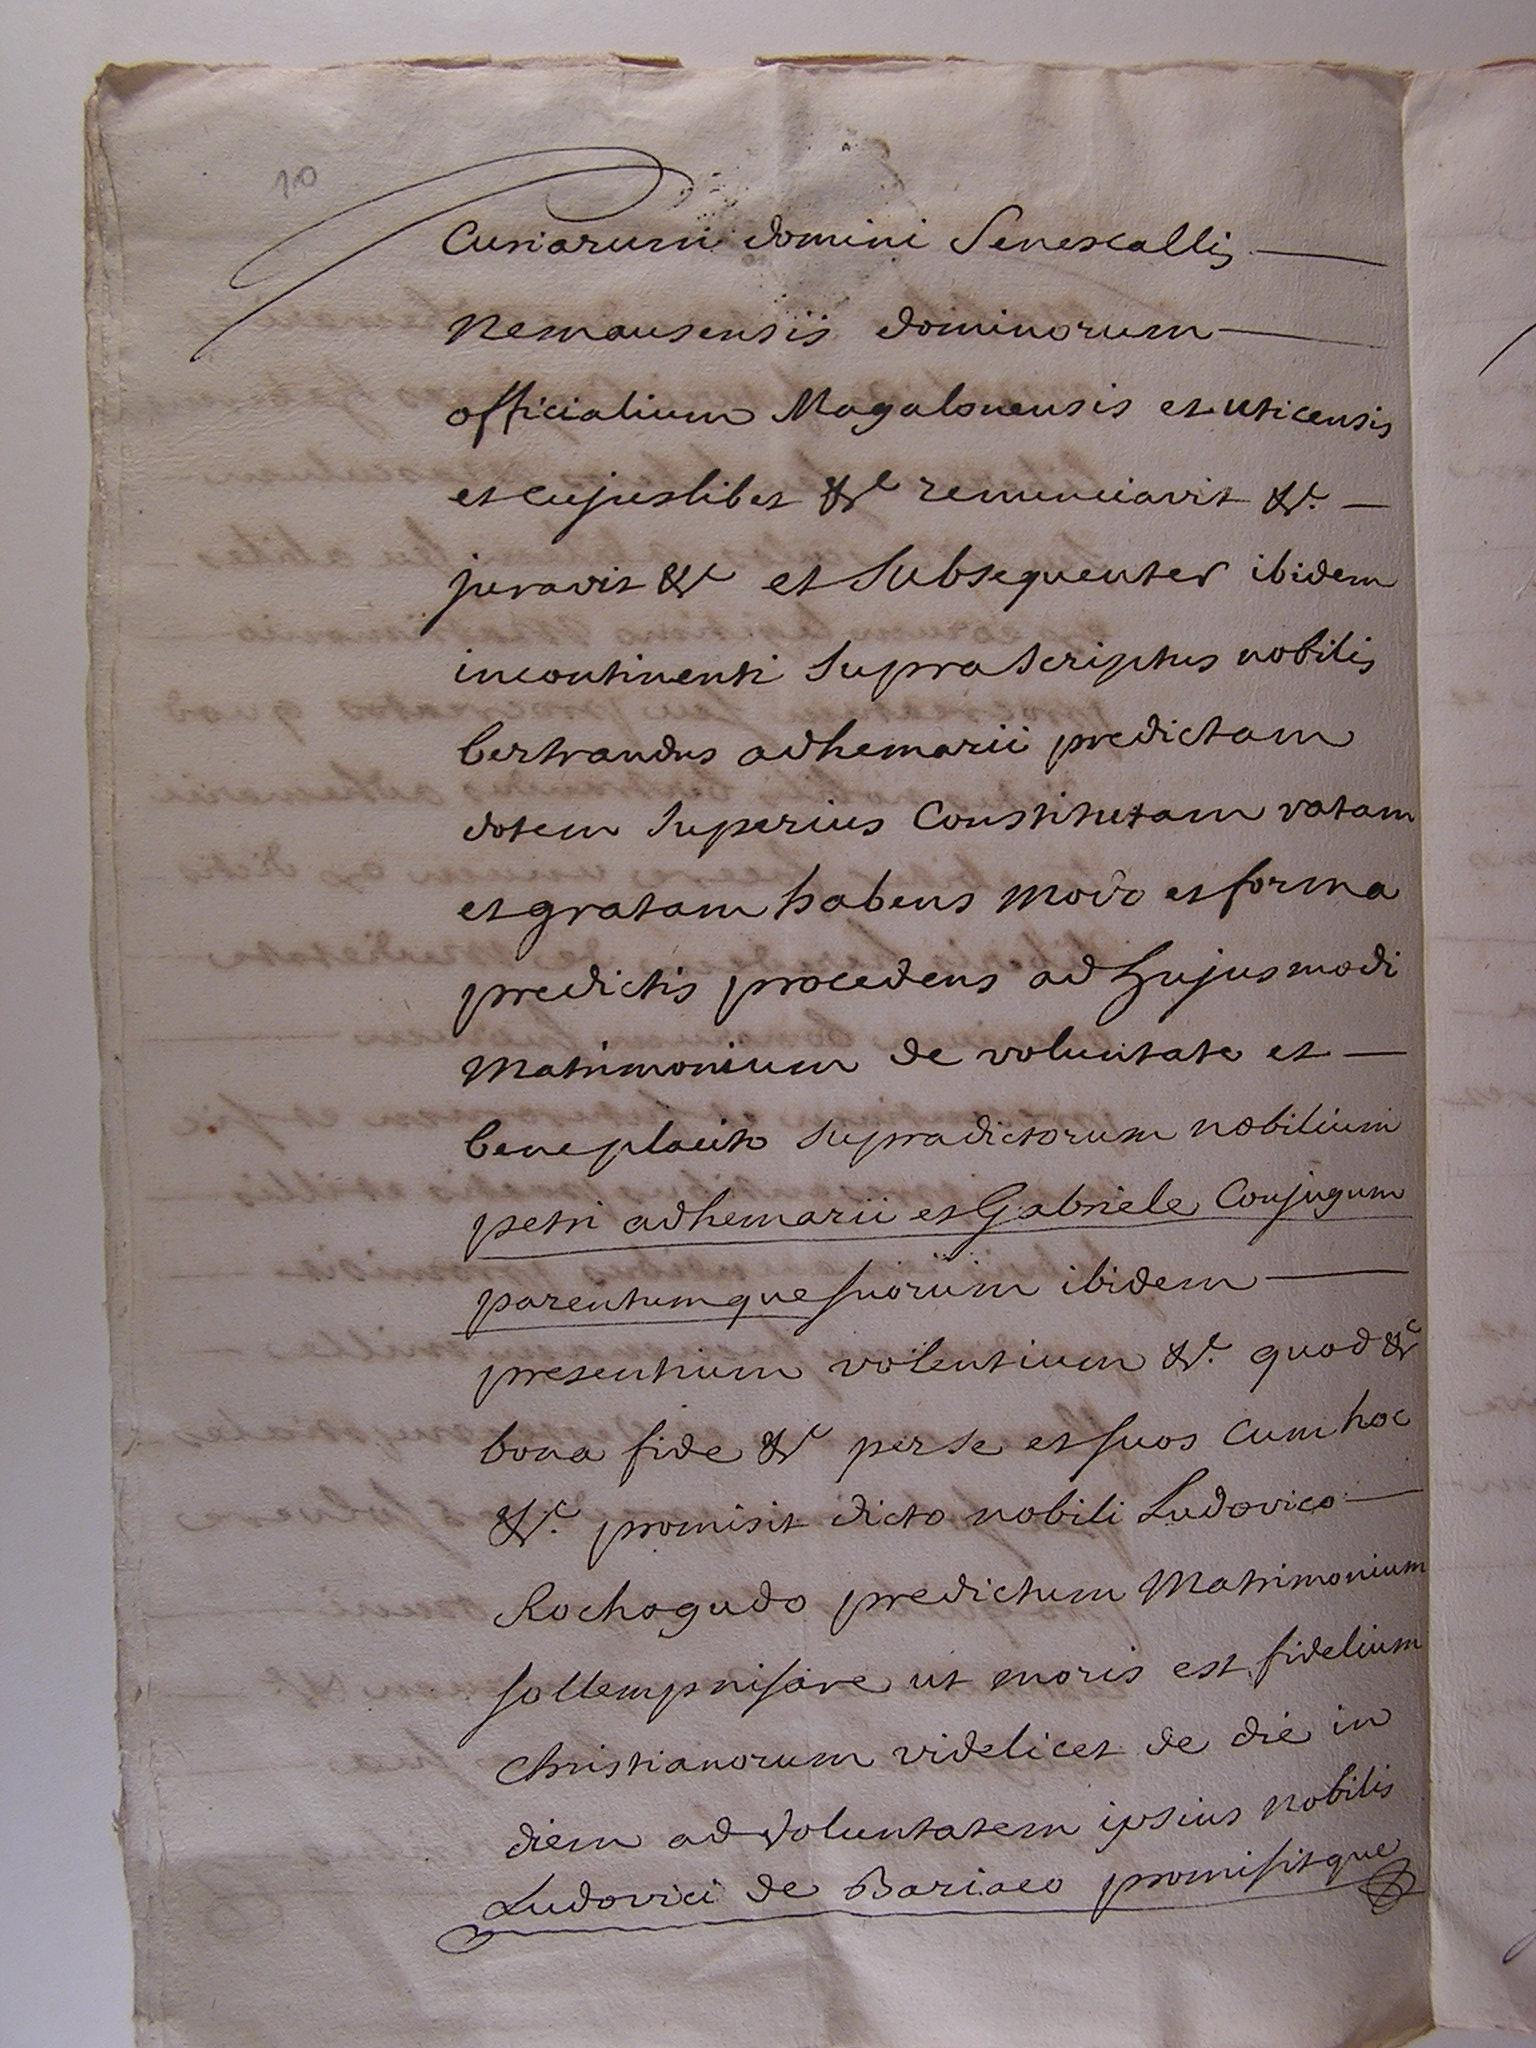 10
Curiarum domini Senescallis
Nemausensis dominorum
officialium Magalonensis et uticensis
et cujuslibet &c renunciavit &c.
juravit &c et subsequenter ibidem
incontinenti supra scriptus nobilis
bertrandus adhemarii predictam
dotem superius Constitutam ratam
et gratam habens modo et forma
predictis procedens ad hujusmodi
Matrimonium de voluntate et
beneplacito supradictorum nobilium
petri adhemarii et Gabriele Conjugum
parentumque suorum ibidem
presentium volentium &c. quod &c
bona fide &c per se et suos cum hoc
&c. promisit dicto nobili Ludovico
Rochagudo predictum Matrimonium
sollempnisare ut moris est fidelium
Christianorum videlicet de die in
diem ad voluntatem ipsius nobilis
Ludovici de Bariaco promisitque